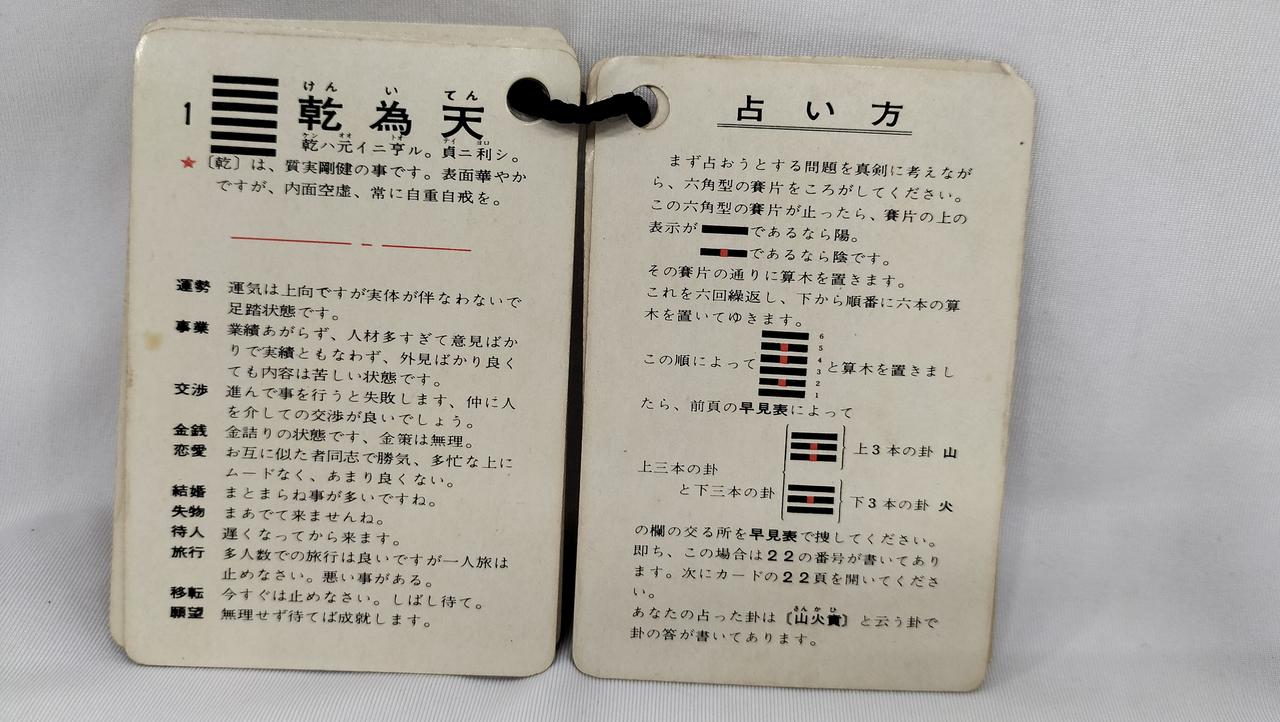 1
けん い てん
乾為天
ケン オオ トオ テイ ヨロ
乾ハ元イニ亨ル。貞ニ利シ。
★〔乾〕は、質実剛健の事です。表面華やか
ですが、内面空虚、常に自重自戒を。
運勢 運気は上向ですが実体が伴なわないで
足踏状態です。
事業 業績あがらず、人材多すぎて意見ばか
りで実績ともなわず、外見ばかり良く
ても内容は苦しい状態です。
交渉 進んで事を行うと失敗します、仲に人
を介しての交渉が良いでしょう。
金銭 金詰りの状態です、金策は無理。
恋愛 お互に似た者同志で勝気、多忙な上に
ムードなく、あまり良くない。
結婚 まとまらね事が多いですね。
失物 まあでて来ませんね。
待人 遅くなってから来ます。
旅行 多人数での旅行は良いですが一人旅は
止めなさい。悪い事がある。
移転 今すぐは止めなさい。しばし待て。
願望 無理せず待てば成就します。
占い方
まず占おうとする問題を真剣に考えなが
ら、六角型の賽片をころがしてください。
この六角型の賽片が止ったら、賽片の上の
表示が であるなら陽。
であるなら陰です。
その賽片の通りに算木を置きます。
これを六回繰返し、下から順番に六本の算
木を置いてゆきます。
6
5
4
3
2
1
この順によって と算木を置きまし
たら、前頁の早見表によって
上3本の卦 山
上三本の卦
と下三本の卦
下3本の卦 火
の欄の交る所を早見表で捜してください。
即ち、この場合は22の番号が書いてあり
ます。次にカードの22頁を開いてくださ
い。
さん か ひ
あなたの占った卦は〔山火賁〕と云う卦で
卦の答が書いてあります。